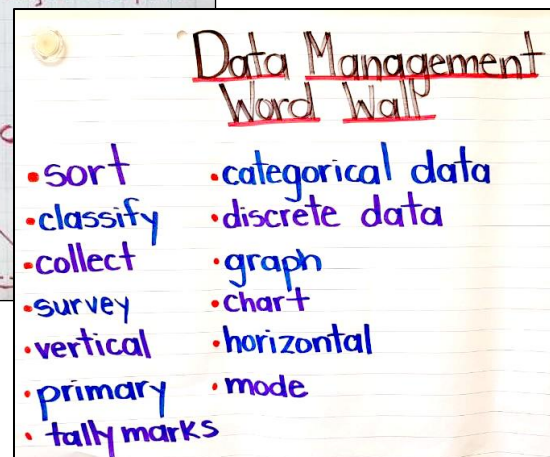 Data Management
Word Wall
• sort
• classify
• collect
• survey
• vertical
• primary
• tally marks
• categorical data
• discrete data
• graph
• chart
• horizontal
• mode